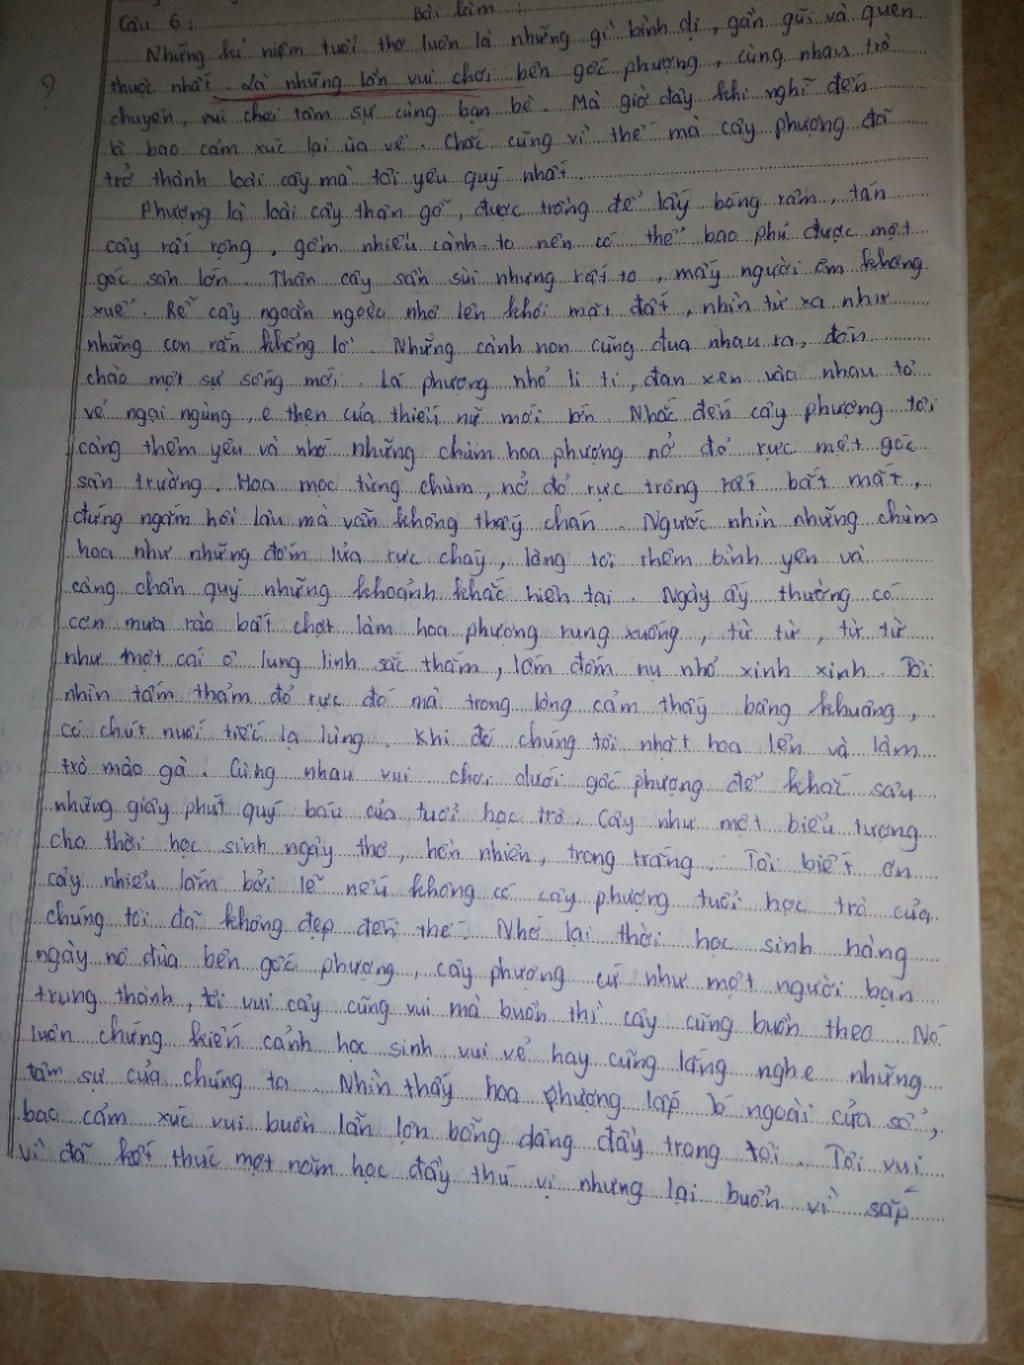 Câu 6: Bài làm:
Những kỉ niệm tuổi thơ luôn là những gì bình dị, gần gũi và quen
?
thuộc nhất. Là những lần vui chơi bên gốc phượng, cùng nhau trò
chuyện, vui chơi tâm sự cùng bạn bè. Mà giờ đây khi nghĩ đến
bao cảm xúc lại ùa về. Chắc cũng vì thế mà cây phượng đã
trở thành loài cây mà tôi yêu quý nhất.
Phượng là loài cây thân gỗ, được trồng để lấy bóng râm, tán
cây rất rộng, gồm nhiều cành to nên có thể bao phủ được một
góc sân lớn. Thân cây sần sùi nhưng rất to, mấy người ôm không
xuể. Rễ cây ngoằn ngoèo nhô lên khỏi mặt đất, nhìn từ xa như
những con rắn khổng lồ. Những cành non cũng đua nhau ra, đón
chào một sự sống mới. Lá phượng nhỏ li ti, đan xen vào nhau tỏ
vẻ ngại ngùng, e thẹn của thiếu nữ mới lớn. Nhắc đến cây phượng tôi
càng thêm yêu và nhớ những chùm hoa phượng nở đỏ rực một góc
sân trường. Hoa mọc từng chùm, nở đỏ rực trông rất bắt mắt,
đứng ngắm hồi lâu mà vẫn không thấy chán. Ngước nhìn những chùm
hoa như những đốm lửa rực cháy, lòng tôi thêm bình yên và
càng chân quý những khoảnh khắc hiện tại. Ngày ấy thường có
cơn mưa rào bất chợt làm hoa phượng rụng xuống, từ từ, từ từ
như một cái ô lung linh sắc thắm, lấm đốm nụ nhỏ xinh xinh. Tôi
nhìn tấm thảm đỏ rực đó mà trong lòng cảm thấy bâng khuâng,
có chút nuối tiếc lạ lùng. Khi đó chúng tôi nhặt hoa lên và làm
trò mào gà. Cùng nhau vui chơi dưới gốc phượng để khắc sâu
những giây phút quý báu của tuổi học trò. Cây như một biểu tượng
cho thời học sinh ngây thơ, hồn nhiên, trong trắng. Tôi biết ơn
cây nhiều lắm bởi lẽ nếu không có cây phượng tuổi học trò của
chúng tôi đã không đẹp đến thế. Nhớ lại thời học sinh hàng
ngày nô đùa bên gốc phượng, cây phượng cứ như một người bạn
trung thành, tôi vui cây cũng vui mà buồn thì cây cũng buồn theo. Nó
luôn chứng kiến cảnh học sinh vui vẻ hay cũng lắng nghe những
tâm sự của chúng ta. Nhìn thấy hoa phượng lấp ló ngoài cửa sổ,
bao cảm xúc vui buồn lẫn lộn bỗng dâng đầy trong tôi. Tôi vui
vì đã kết thúc một năm học đầy thú vị nhưng lại buồn vì sắp